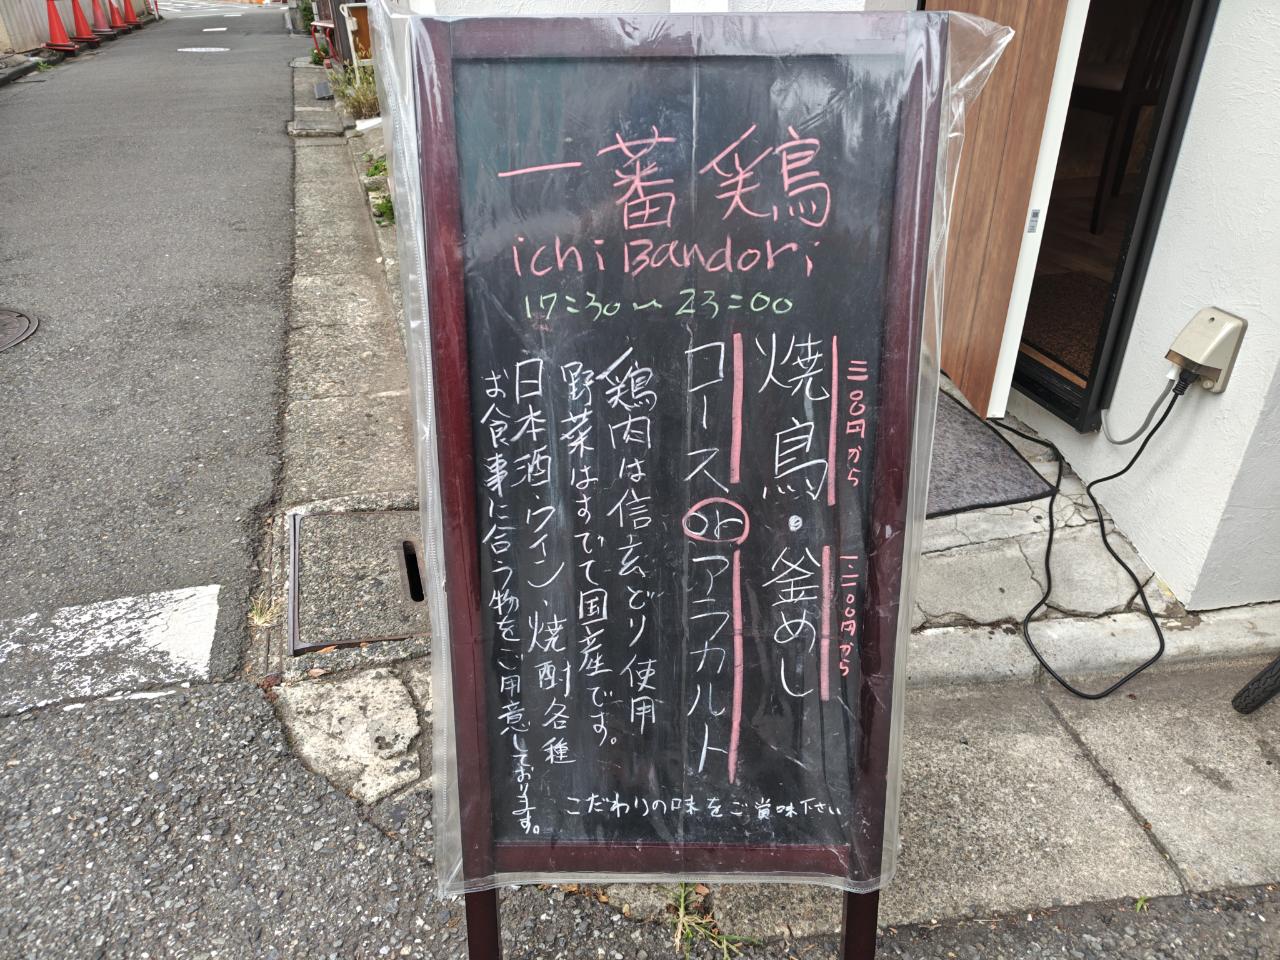 一蕃鶏
ichiBandori
17:30〜23:00
三〇〇円から
一、二〇〇円から
焼鳥・釜めし
コースorアラカルト
鶏肉は信玄どり使用
野菜はすべて国産です。
日本酒、ワイン、焼酎各種
お食事に合う物をご用意しております。
こだわりの味をご賞味下さい